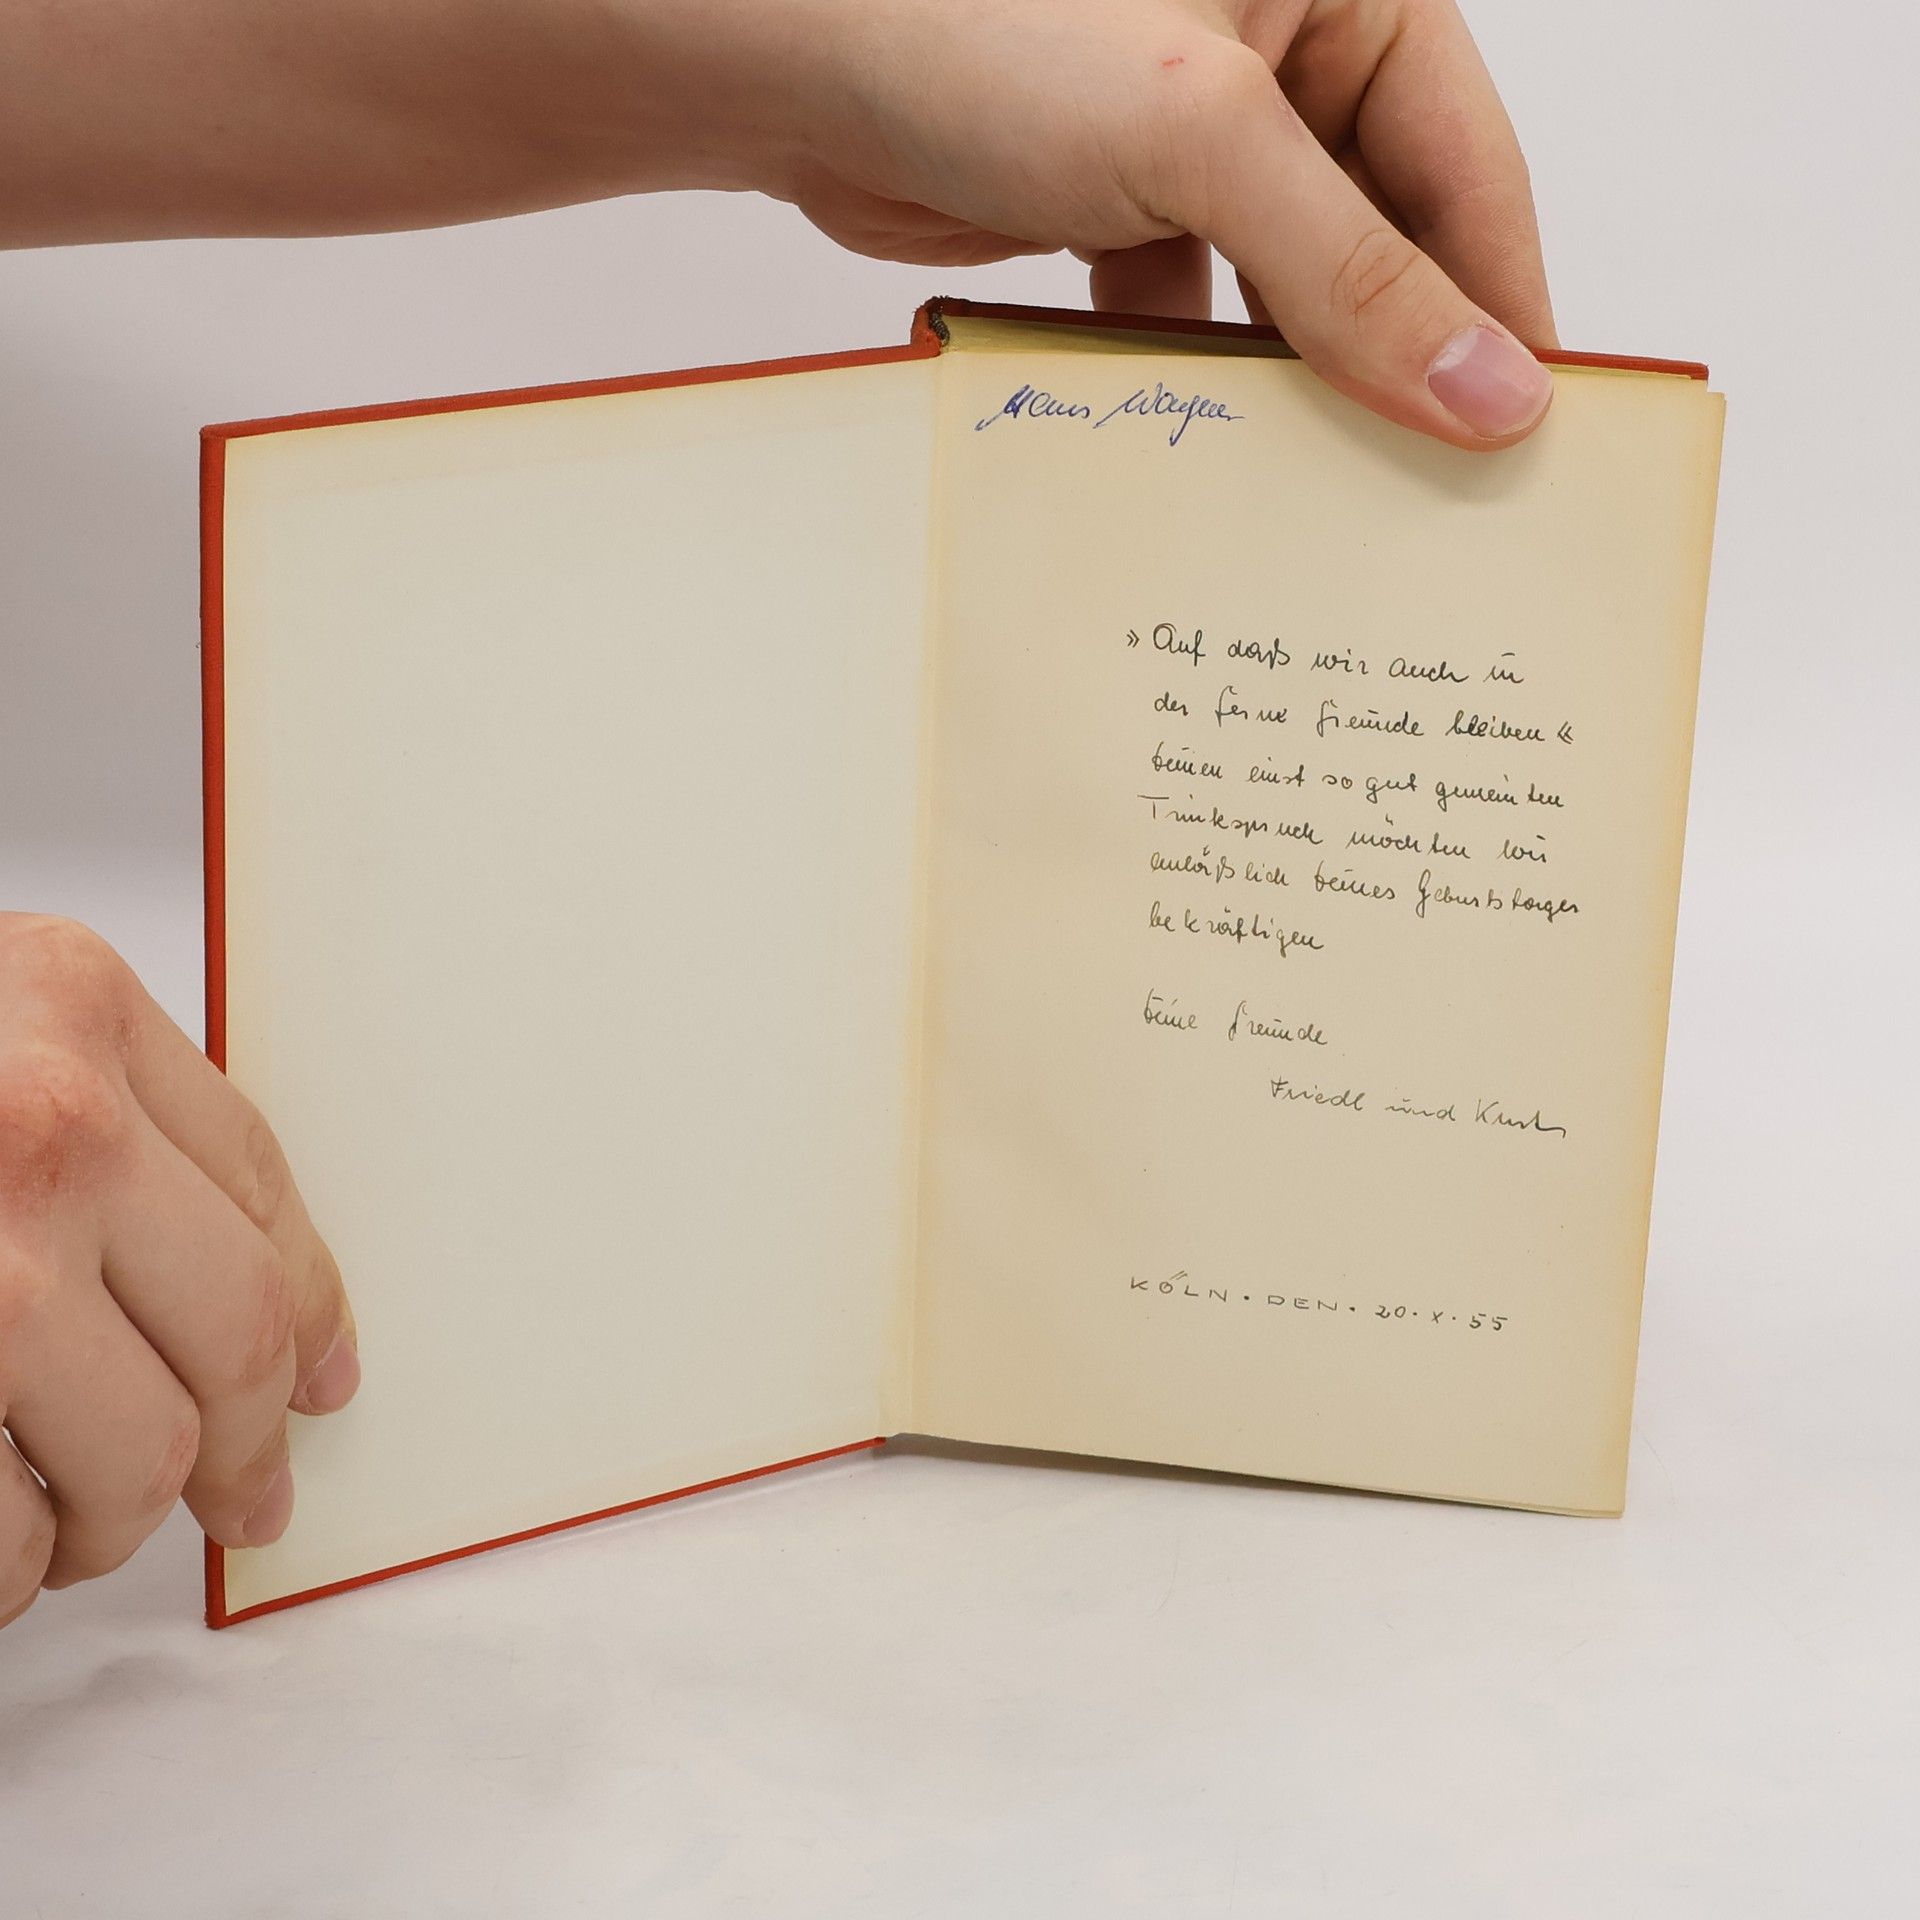 Hans Wagner
» Auf daß wir auch in
der Ferne Freunde bleiben «
deinen einst so gut gemeinten
Trinkspruch möchten wir
anläßlich deines Geburtstages
bekräftigen
deine Freunde
Friedl und Kurt
KÖLN · DEN · 20 · X · 55